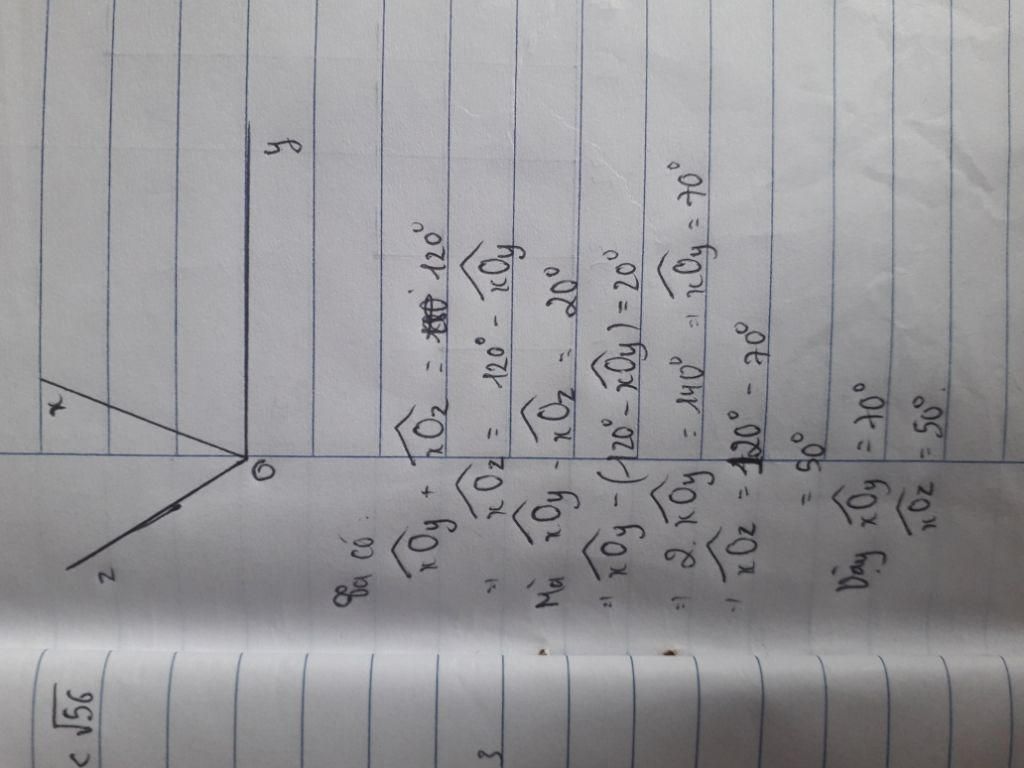 < √56
3
x
z
O
y
Ta có:
xOy + xOz = 120°
=> xOz = 120° - xOy
Mà xOy - xOz = 20°
=> xOy - (120° - xOy) = 20°
=> 2. xOy = 140° => xOy = 70°
=> xOz = 120° - 70°
= 50°
Vậy xOy = 70°
xOz = 50°.